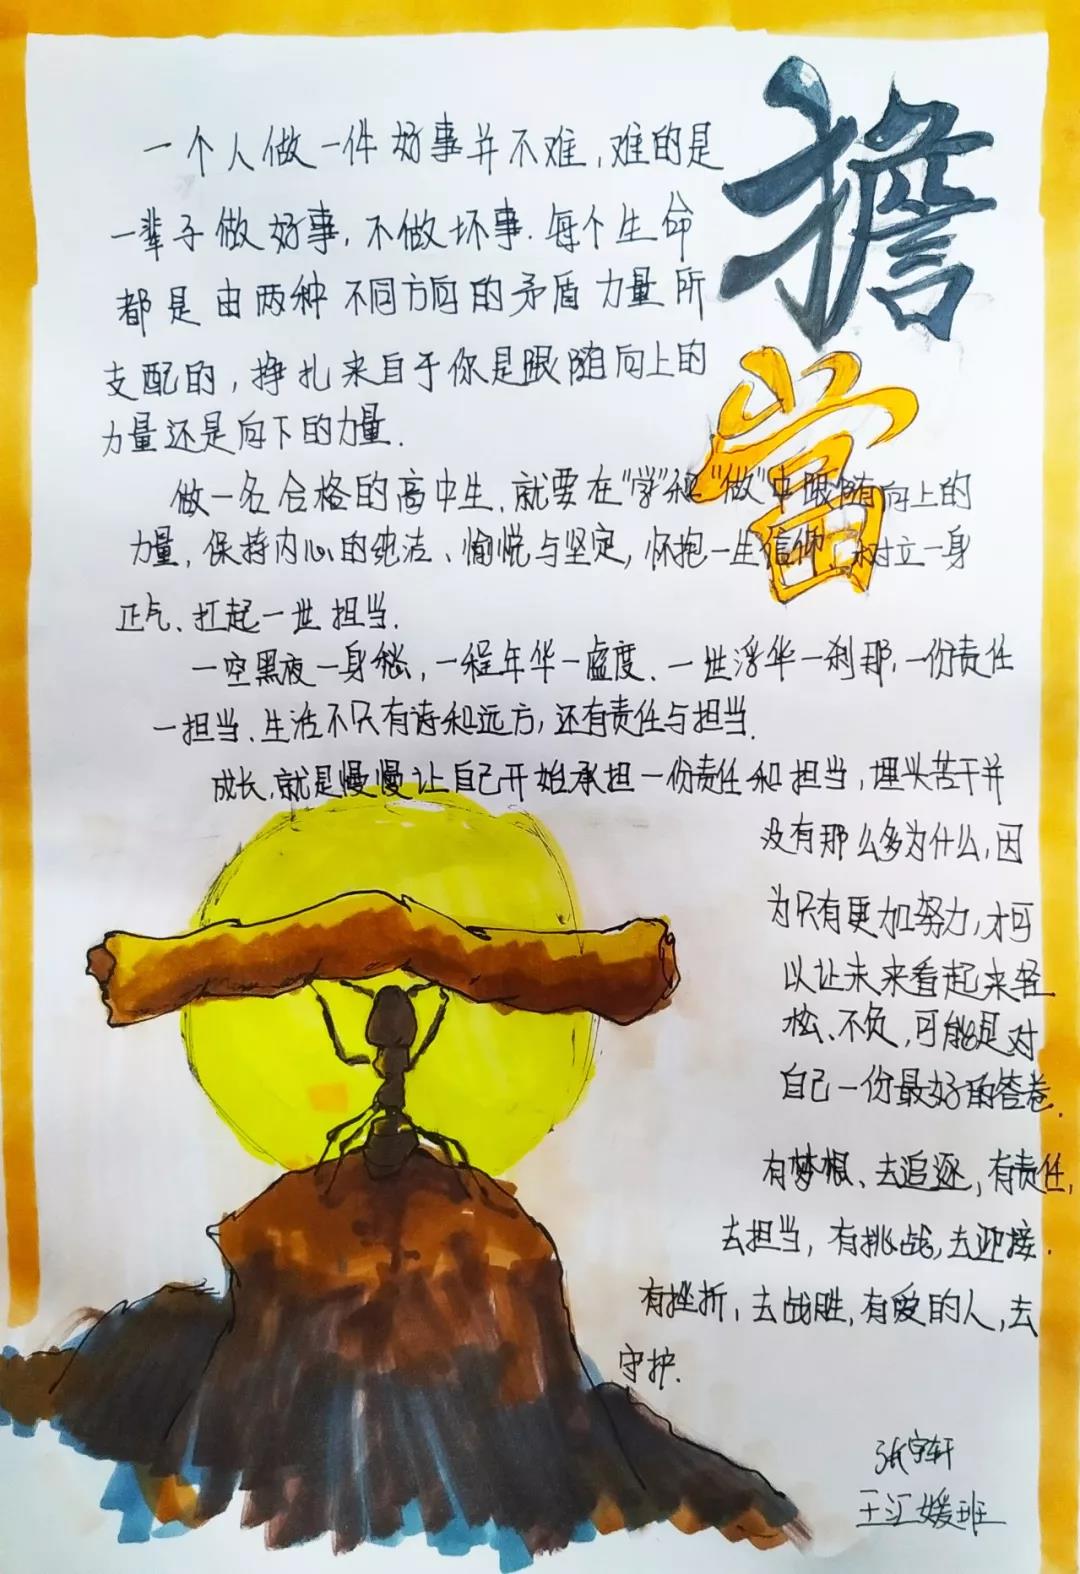 擔
當
一个人做一件好事并不难,难的是
一辈子做好事,不做坏事.每个生命
都是由两种不同方向的矛盾力量所
支配的,挣扎来自于你是跟随向上的
力量还是向下的力量.
做一名合格的高中生,就要在"学"和"做"中跟随向上的
力量,保持内心的纯洁、愉悦与坚定,怀抱一生信仰、树立一身
正气、扛起一世担当.
一空黑夜一身愁,一程年华一虚度、一世浮华一刹那,一份责任
一担当、生活不只有诗和远方,还有责任与担当.
成长,就是慢慢让自己开始承担一份责任和担当,埋头苦干并
没有那么多为什么,因
为只有更加努力,才可
以让未来看起来轻
松、不负,可能是对
自己一份最好的答卷.
有梦想、去追逐,有责任,
去担当,有挑战,去迎接.
有挫折,去战胜,有爱的人,去
守护.
张宇轩
王江媛班